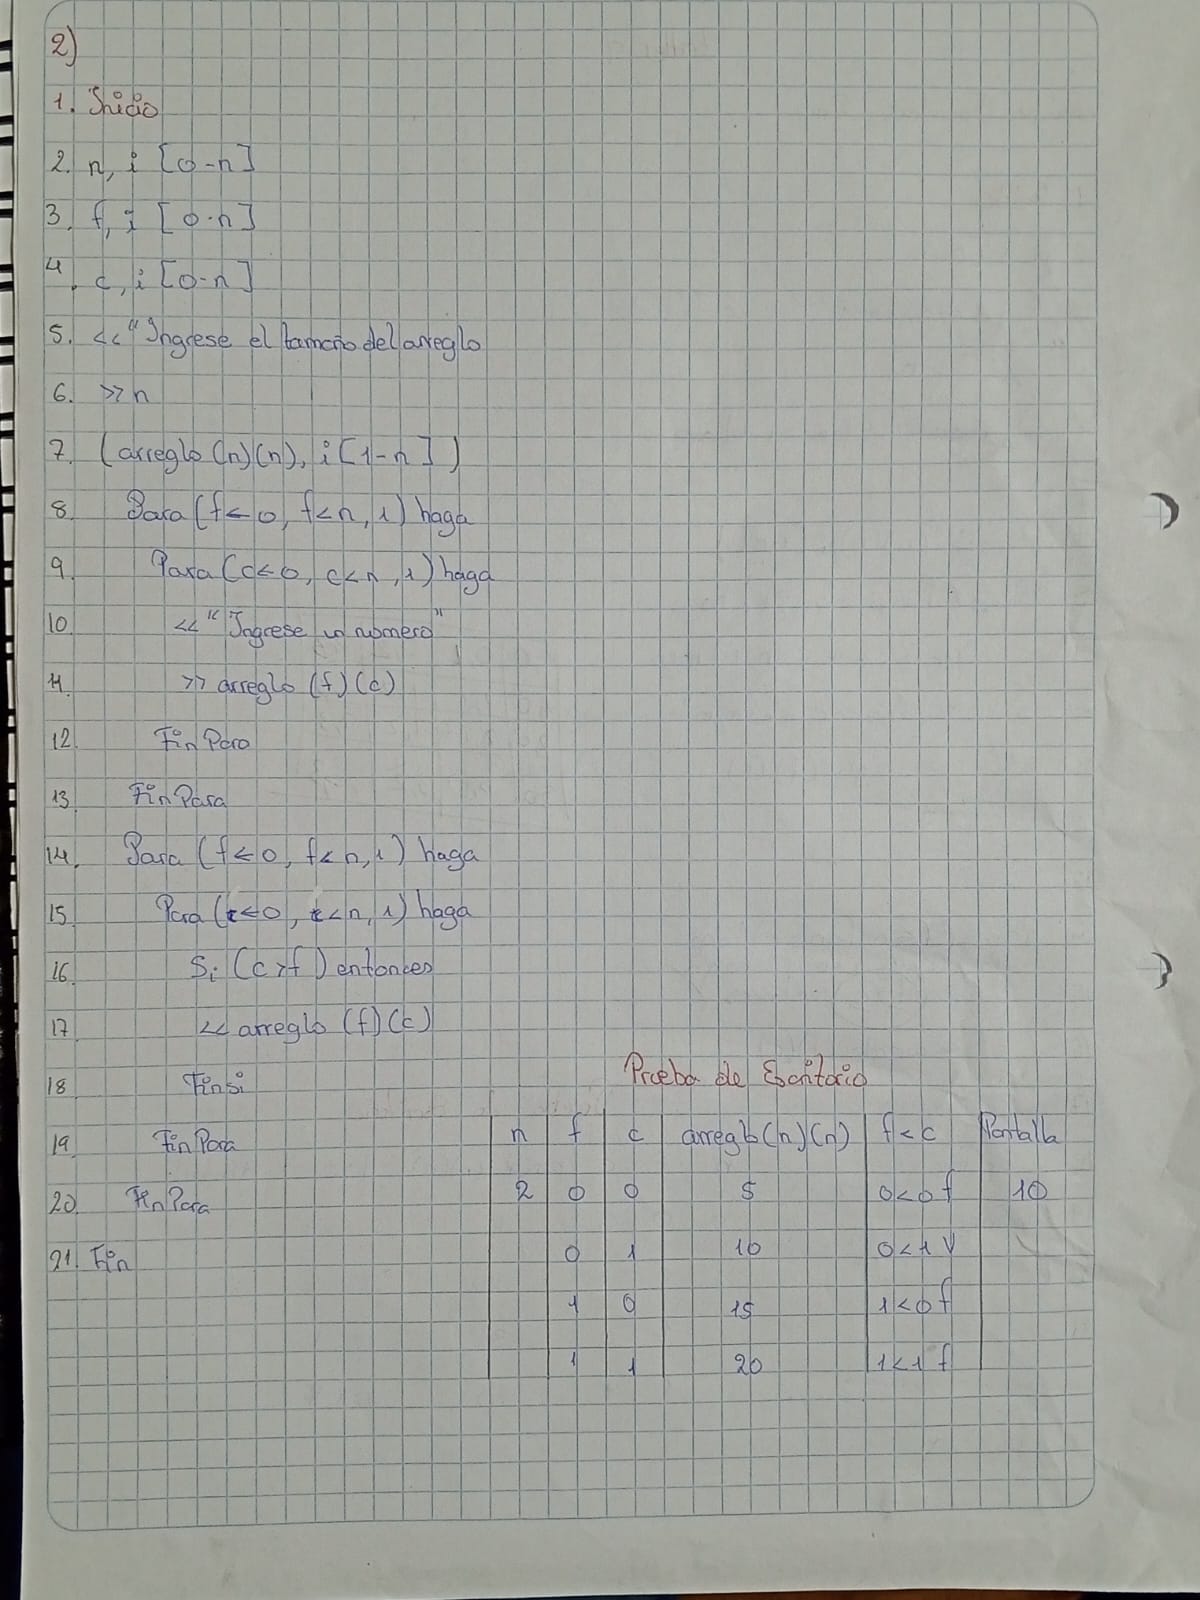 2)
1. Inicio
2. n, i [0-n]
3. f, i [0-n]
4. c, i [0-n]
5. << "Ingrese el tamaño del arreglo
6. >> n
7. (arreglo (n)(n), i [1-n])
8 Para (f<-0, f<n, 1) haga
9. Para (c<-0, c<n, 1) haga
10 << "Ingrese un número"
11. >> arreglo (f)(c)
12. Fin Para
13. Fin Para
14. Para (f<-0, f<n, 1) haga
15. Para (c<-0, c<n, 1) haga
16 Si (c>f) entonces
17 << arreglo (f)(c)
18 Finsi
19 Fin Para
20. Fin Para
21. Fin
Prueba de Escritorio
n f c arreglo(n)(n) f<c Pantalla
2 0 0 5 0<0 f 10
0 1 10 0<1 V
1 0 15 1<0 f
1 1 20 1<1 f